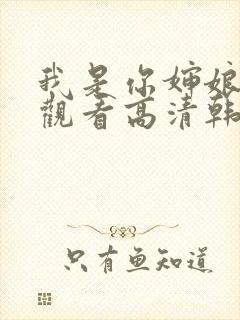 我是你婶娘
觀看高清韩
只有鱼知道